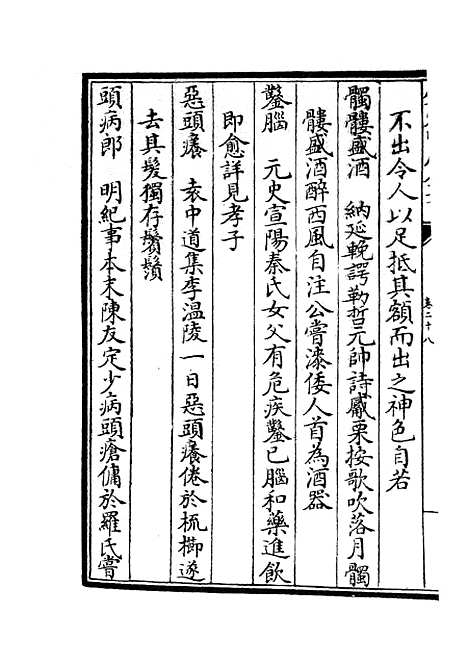 不出令人以足抵其額而出之神色自若
髑髏盛酒　納延輓諤勒哲元帥詩觱栗按歌吹落月髑
髏盛酒醉西風自注公嘗漆倭人首為酒器
鑿腦　元史宣陽秦氏女父有危疾鑿已腦和藥進飲
即愈詳見孝子
惡頭癢　袁中道集李溫陵一日惡頭癢倦於梳櫛遂
去其髮獨存鬢鬚
頭病郎　明紀事本末陳友定少病頭瘡傭於羅氏嘗
卷二十八